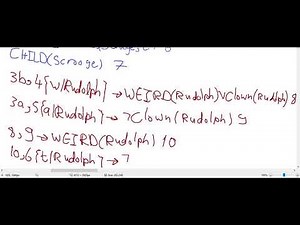 CHILD(Scrooge) 7
3b,4{w/Rudolph} → WEIRD(Rudolph)VClown(Rudolph) 8
3a,5{a/Rudolph} → ¬Clown(Rudolph) 9
8,9 → WEIRD(Rudolph) 10
10,6{t/Rudolph} → ¬